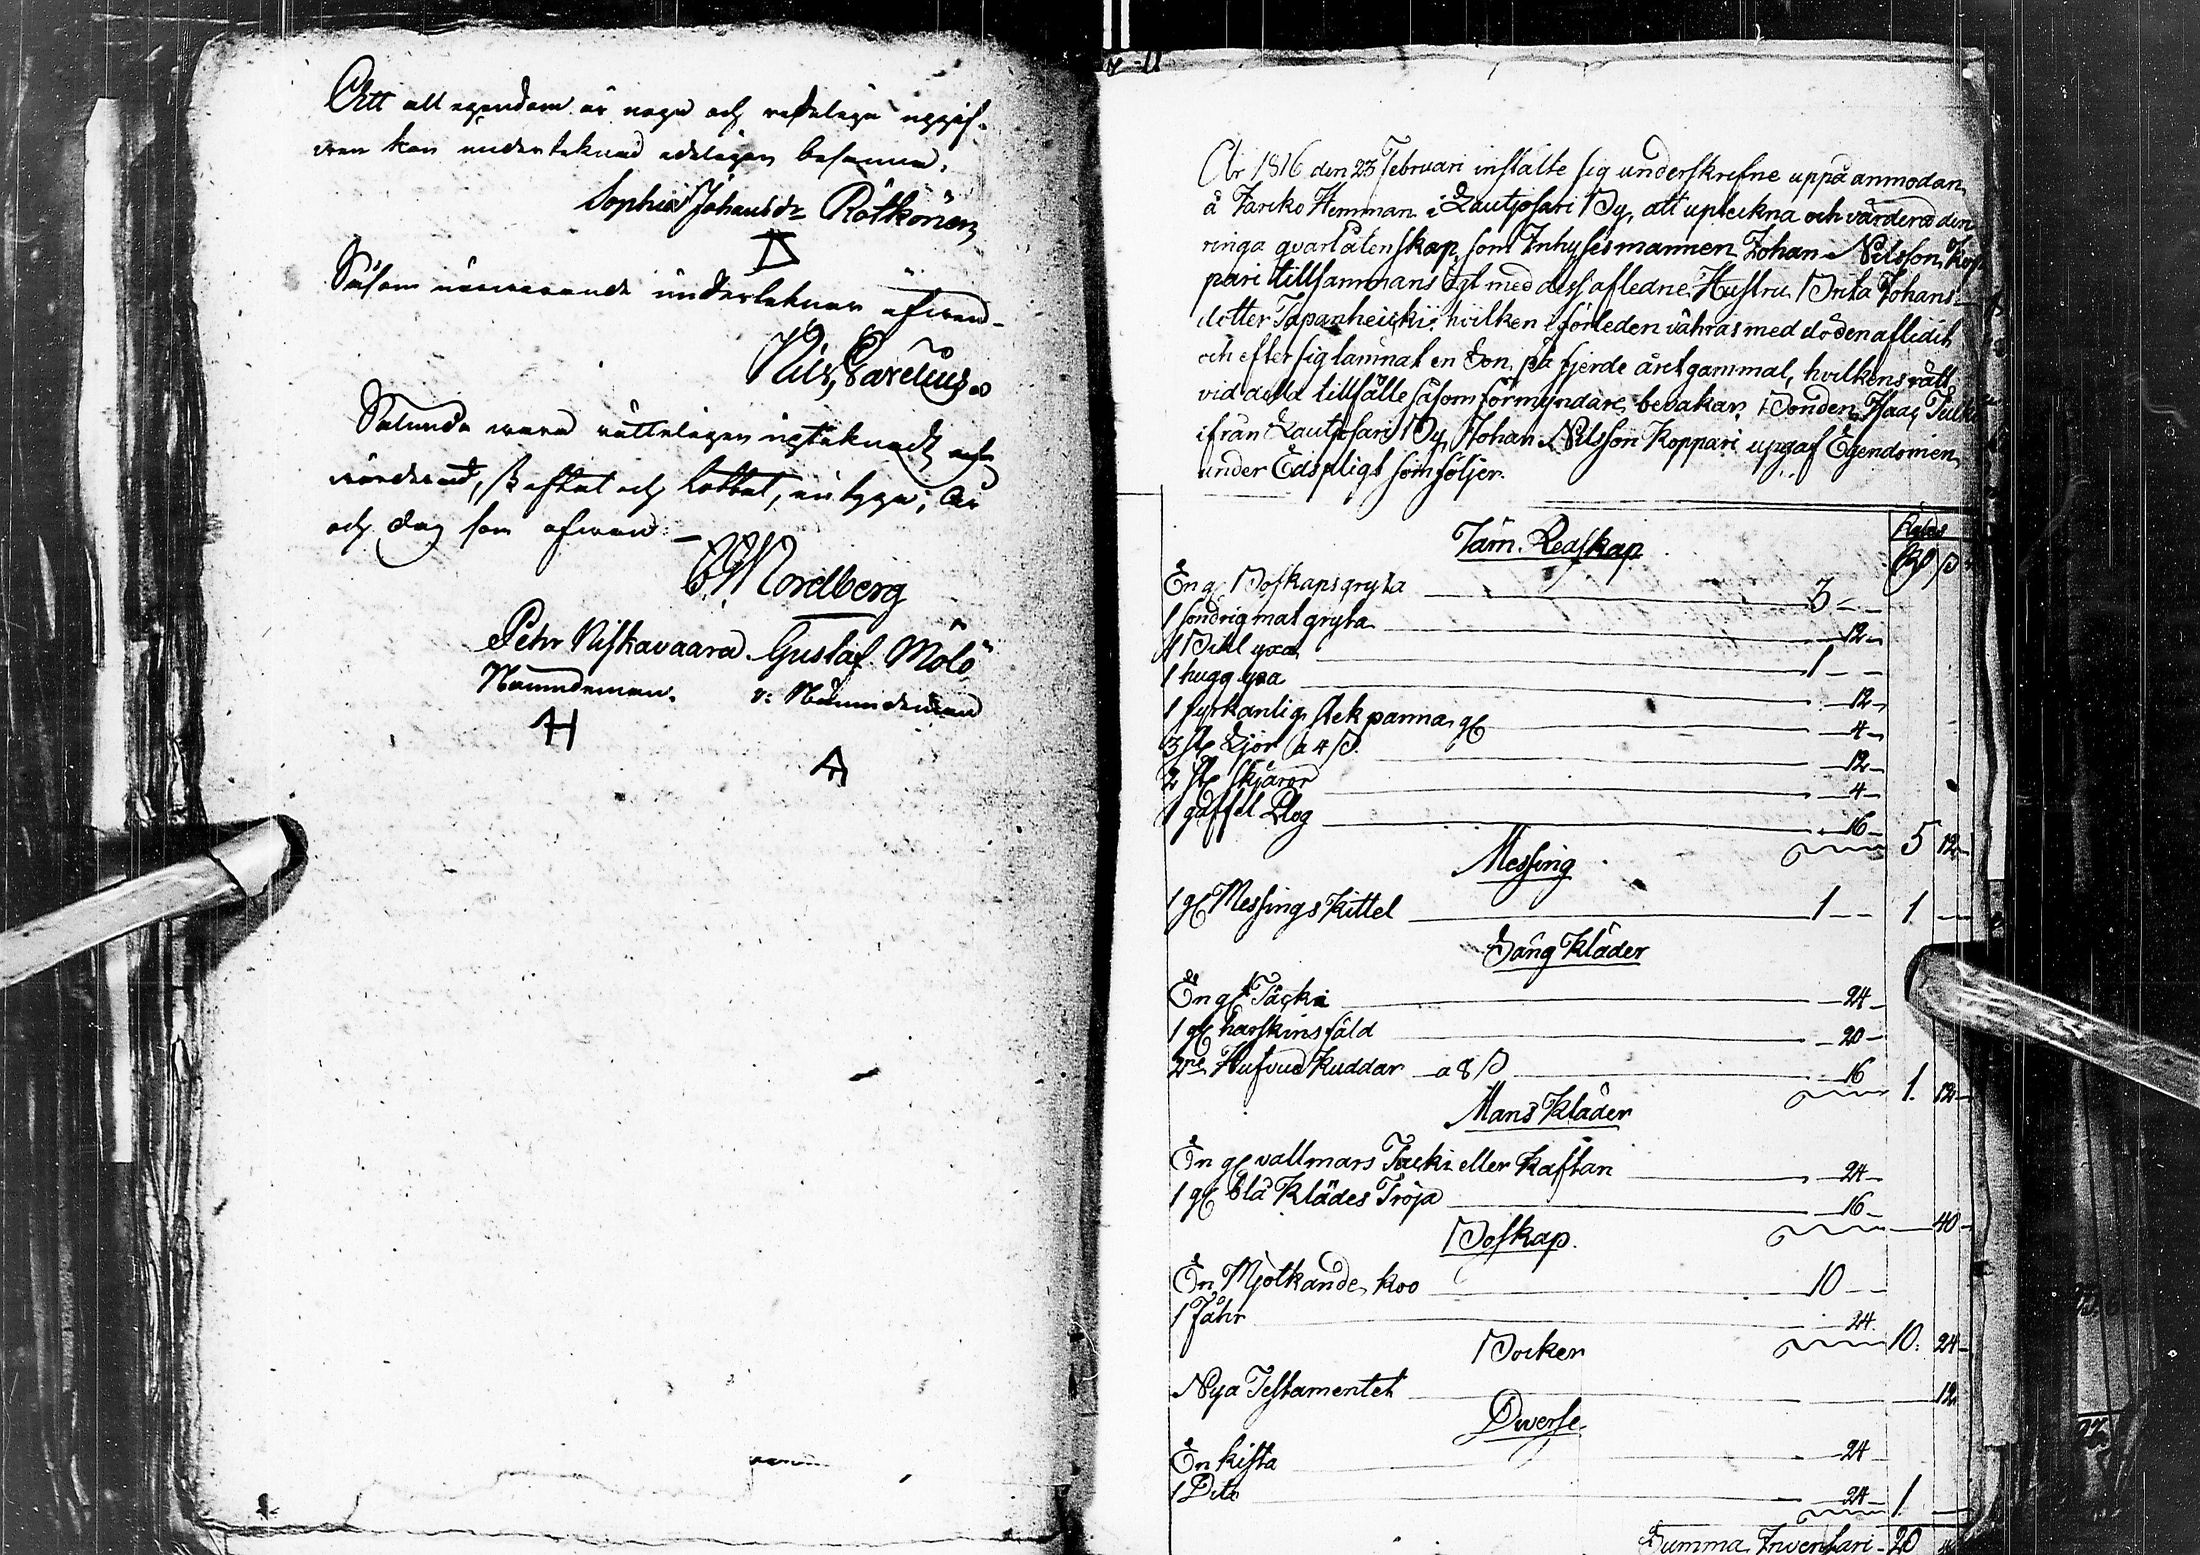 Att all egendom är noga och redeligen uppgif-
wen kan underteknad edeligen besanna.
Sophia Johansdr Rötkönen
Såsom närwarande underteknar ofwan-
Nils Sarelius
Sålunda wara rätteligen uptäknadt och
wärderadt, och dag som ofwan
Nordberg
Pehr Niskavaara Gustaf Molö
Nämndeman. v: Nämndeman
År 1816 den 23 Februari instälte sig underskrefne uppå anmodan
å Jarcko Hemman i Lautjosari By, att upteckna och värdera den
ringa qvarlåtenskap, som Inhysismannen Johan Nilsson Kop
pari tillsammans ägt med dess afledne Hustru Brita Johans
dotter Tapanheicki, hvilken i förleden våhras med döden aflidit
och efter sig lämnat en Son, på fjerde året gammal, hvilkens rätt
vid detta tillfälle såsom förmyndare, bevakar, Bonden Isaac
ifrån Lautjosari By, Johan Nilsson Koppari upgaf Egendomen
under Edspligt som följer.
Järn. Redskap
Rgds
En g. Boskapsgryta 3 - -
1 söndrig mat gryta - 12 -
1 Bihl yxa 1 - -
1 hugg yxa - 12 -
1 fyrkantig stekpanna gl - 4 -
3 st Ljor a 4 s. - 12 -
2 st skjäror - 4 -
1 gaffel Plog - 16 - 5 12 -
Messing
1 gl Messings Kittel 1 - - 1 - -
Säng Kläder
En gl Täcki - 24 -
1 gl harskinsfäld - 20 -
2ne Hufvud Kuddar a 8 s - 16 1. 12 -
Mans Kläder
En gl vallmars Täcki eller Kaftan - 24 -
1 gl blå Klädes Tröja - 16 - - 40 -
Boskap.
En Mjölkande Koo 10 - -
1 Fåhr - 24. 10. 24 -
Böcker
Nya Testamentet - 12
Diverse
En kista - 24
1 Dito - 24 - 1 -
Summa Inventari - 20